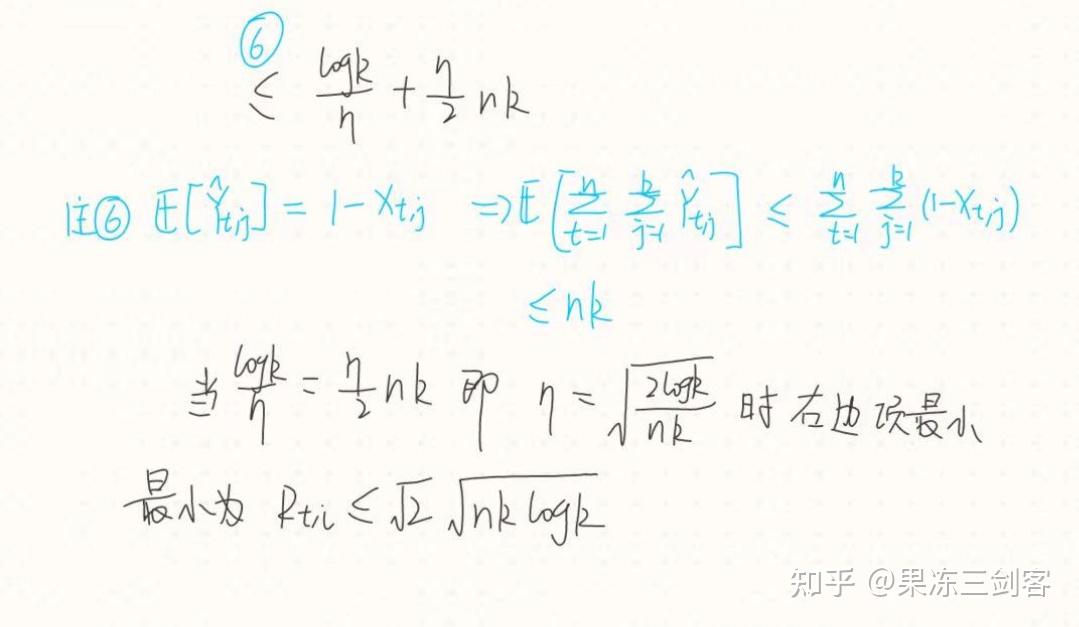 ⑥
≤ logk/η + η/2 nk
注⑥ 𝔼[Ŷ_{t,j}] = 1-X_{t,j} ⇒ 𝔼[∑_{t=1}^{n} ∑_{j=1}^{k} Ŷ_{t,j}] ≤ ∑_{t=1}^{n} ∑_{j=1}^{k} (1-X_{t,j})
≤ nk
当 logk/η = η/2 nk 即 η = √(2logk/nk) 时 右边项最小
最小为 R_{t,i} ≤ √2 √(nk logk)
知乎 @果冻三剑客